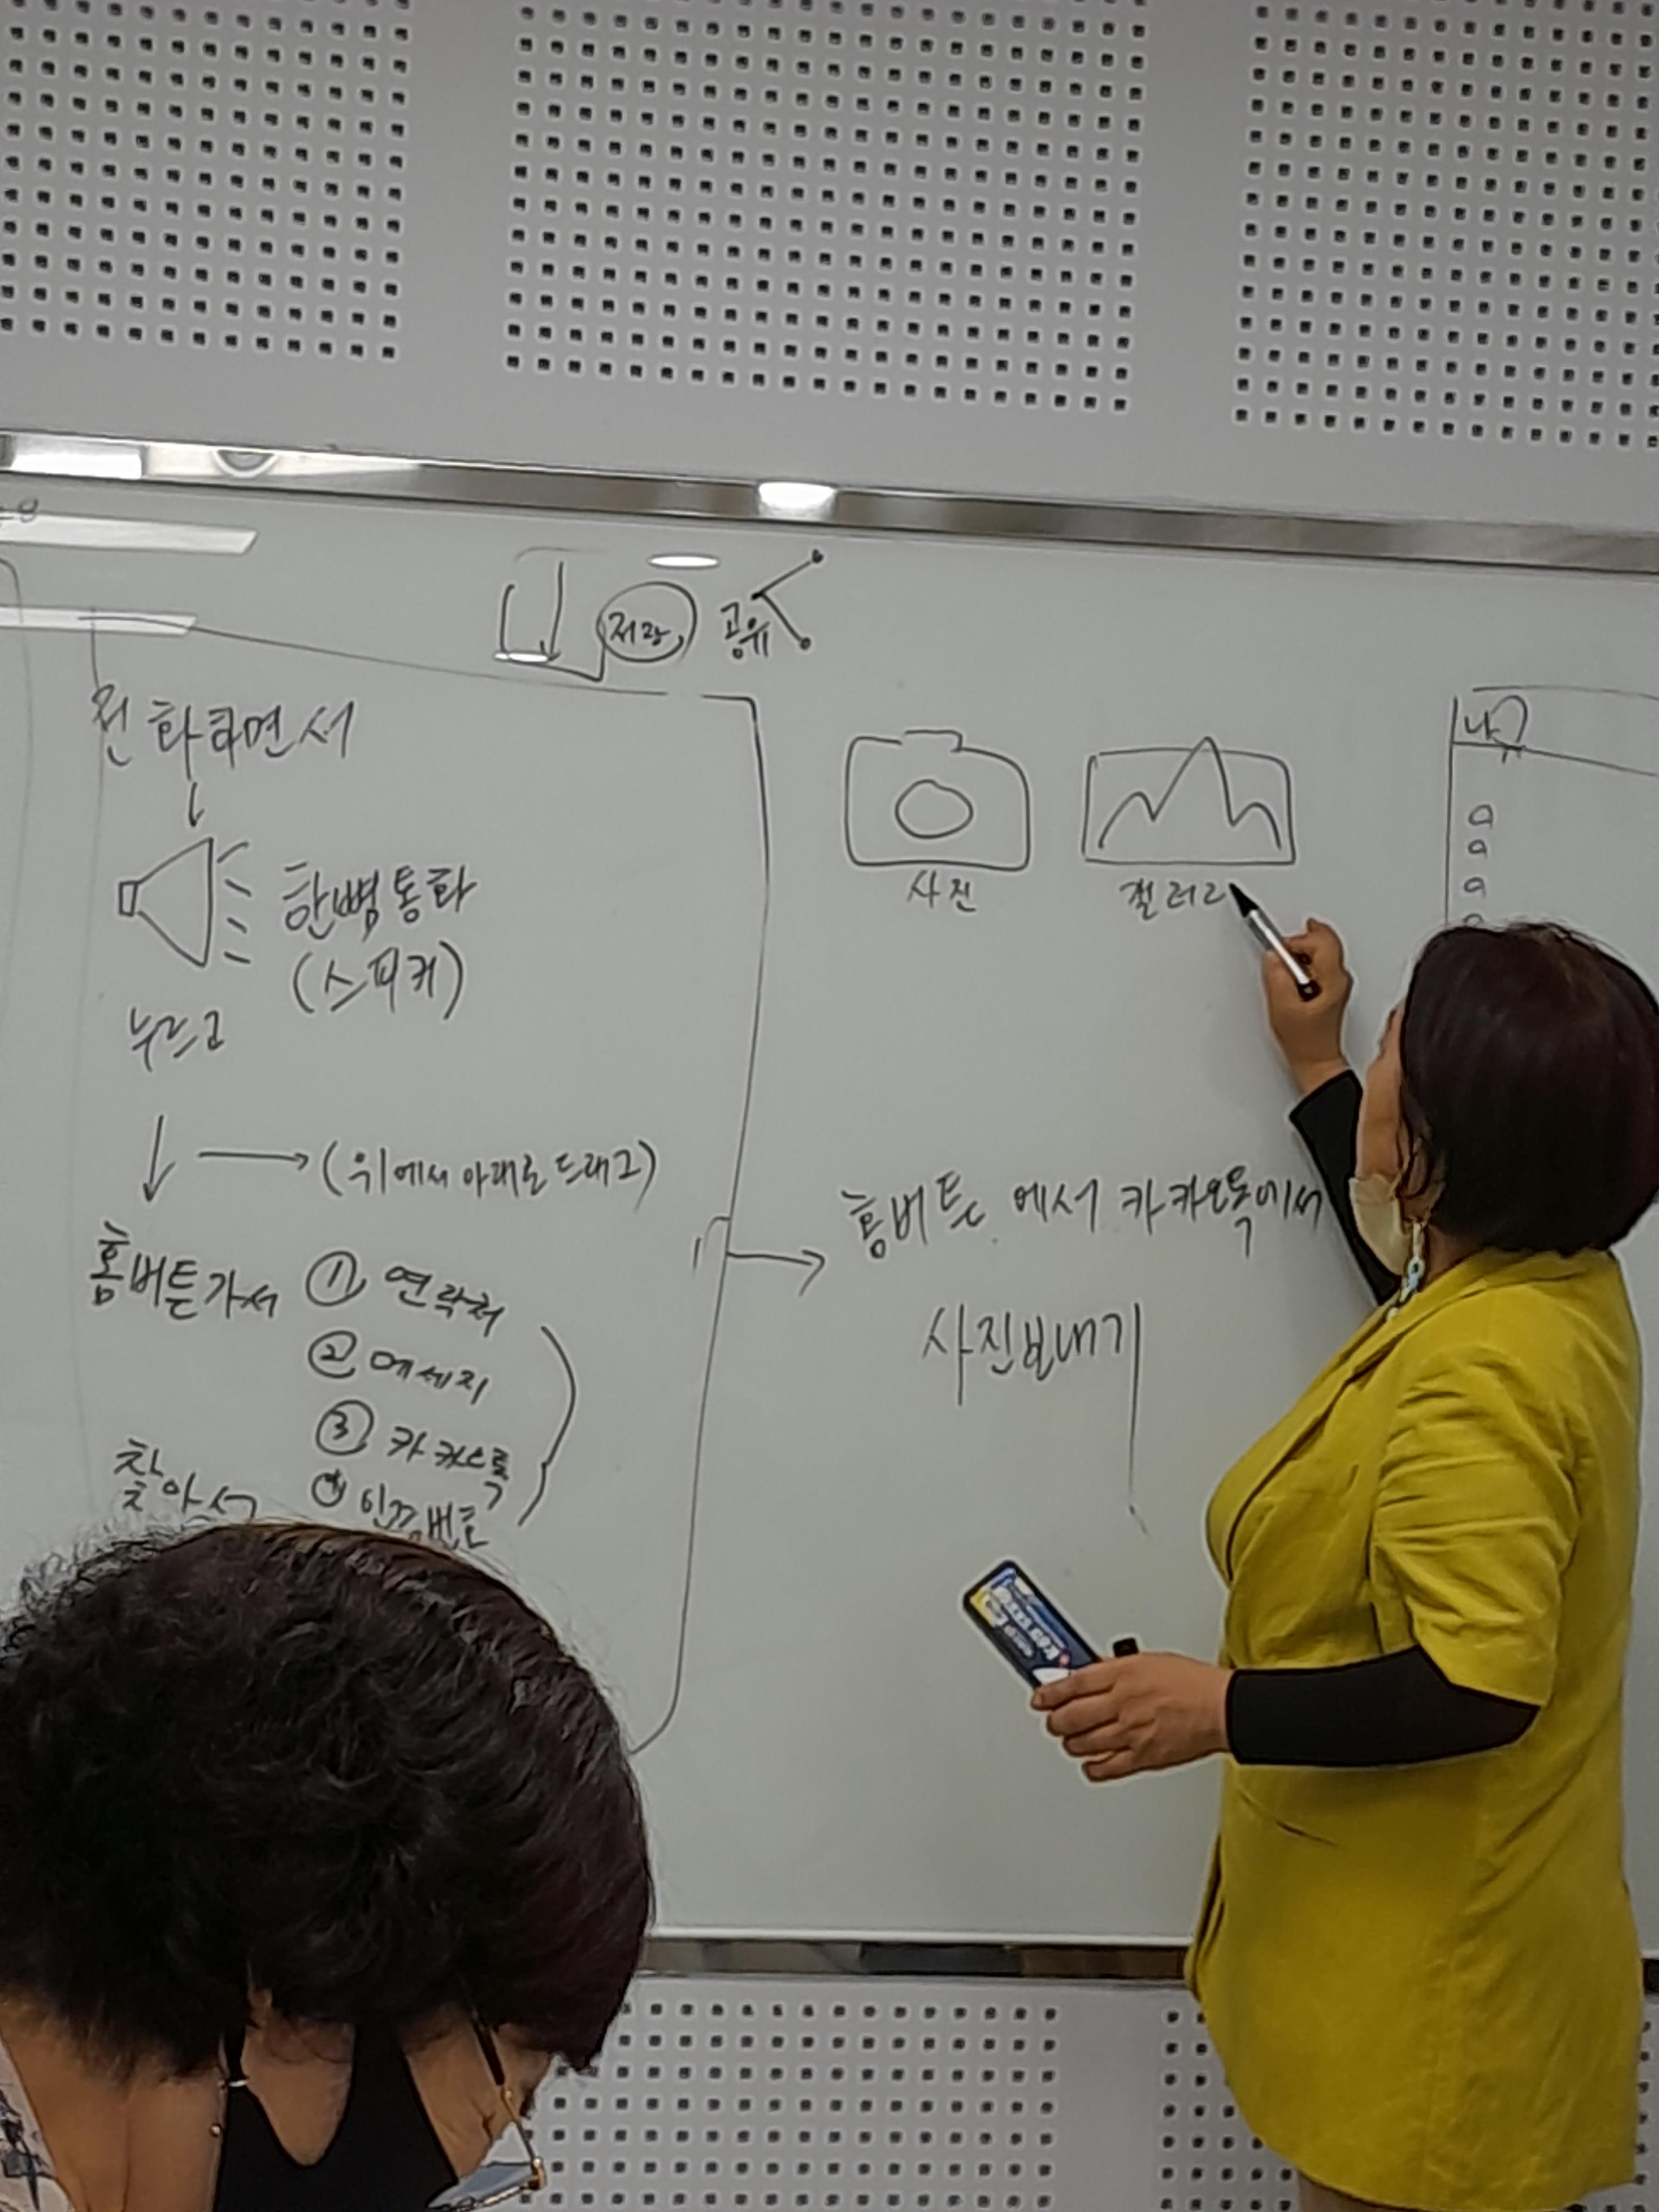 저장 공유
전화하면서
한뼘통화
(스피커)
누르고
(위에서 아래로 드래그)
홈버튼가서 ① 연락처
② 메세지
③ 카카오톡
찾아서
사진
갤러리
홈버튼에서 카카오톡에서
사진보내기